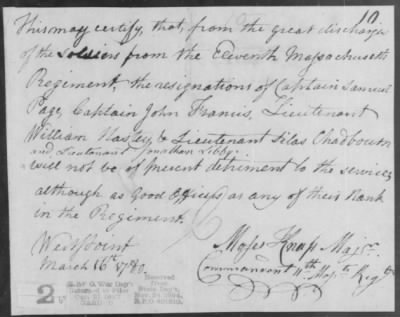 10
This may certify, that, from the great discharge
of the Soldiers from the Eleventh Massachusetts
Regiment, the resignations of Captain Samuel
Page, Captain John Francis, Lieutenant
William Hasley, & Lieutenant Silas Chadbourn
and Lieutenant Jonathan Libby.
will not be of present detriment to the service,
although as good Officers as any of their Rank
in the Regiment.
Westpoint
March 16th 1780.
Moses Knap Majr.
Commandant 11th Massts. Regt.
2
R. & P. O. War Dep't
Received
from
State Dep't